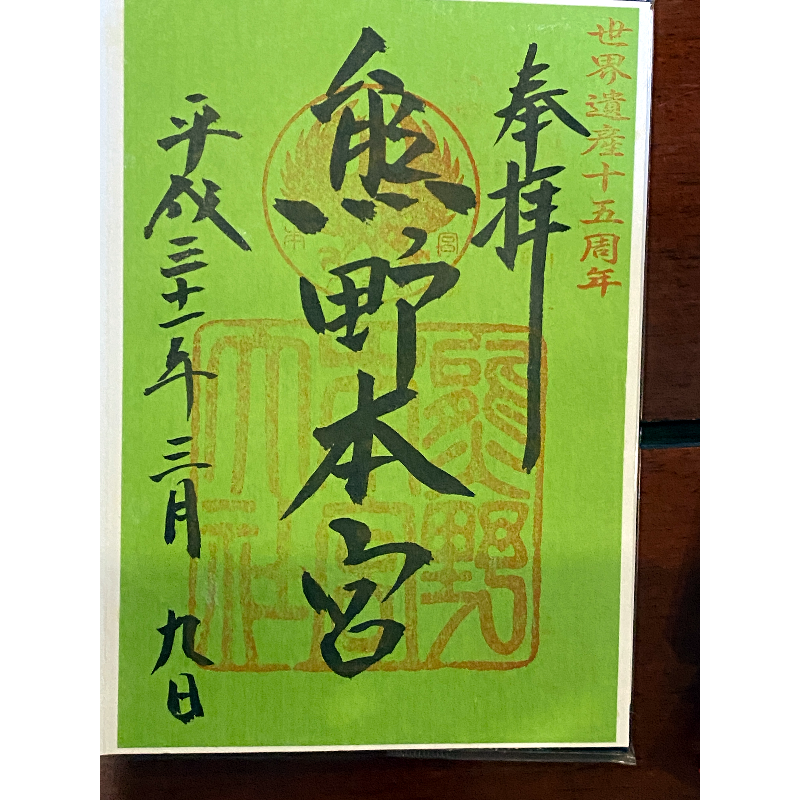 世界遺産十五周年
奉拝
熊野本宮
平成三十一年三月九日
熊野
本宮
大社